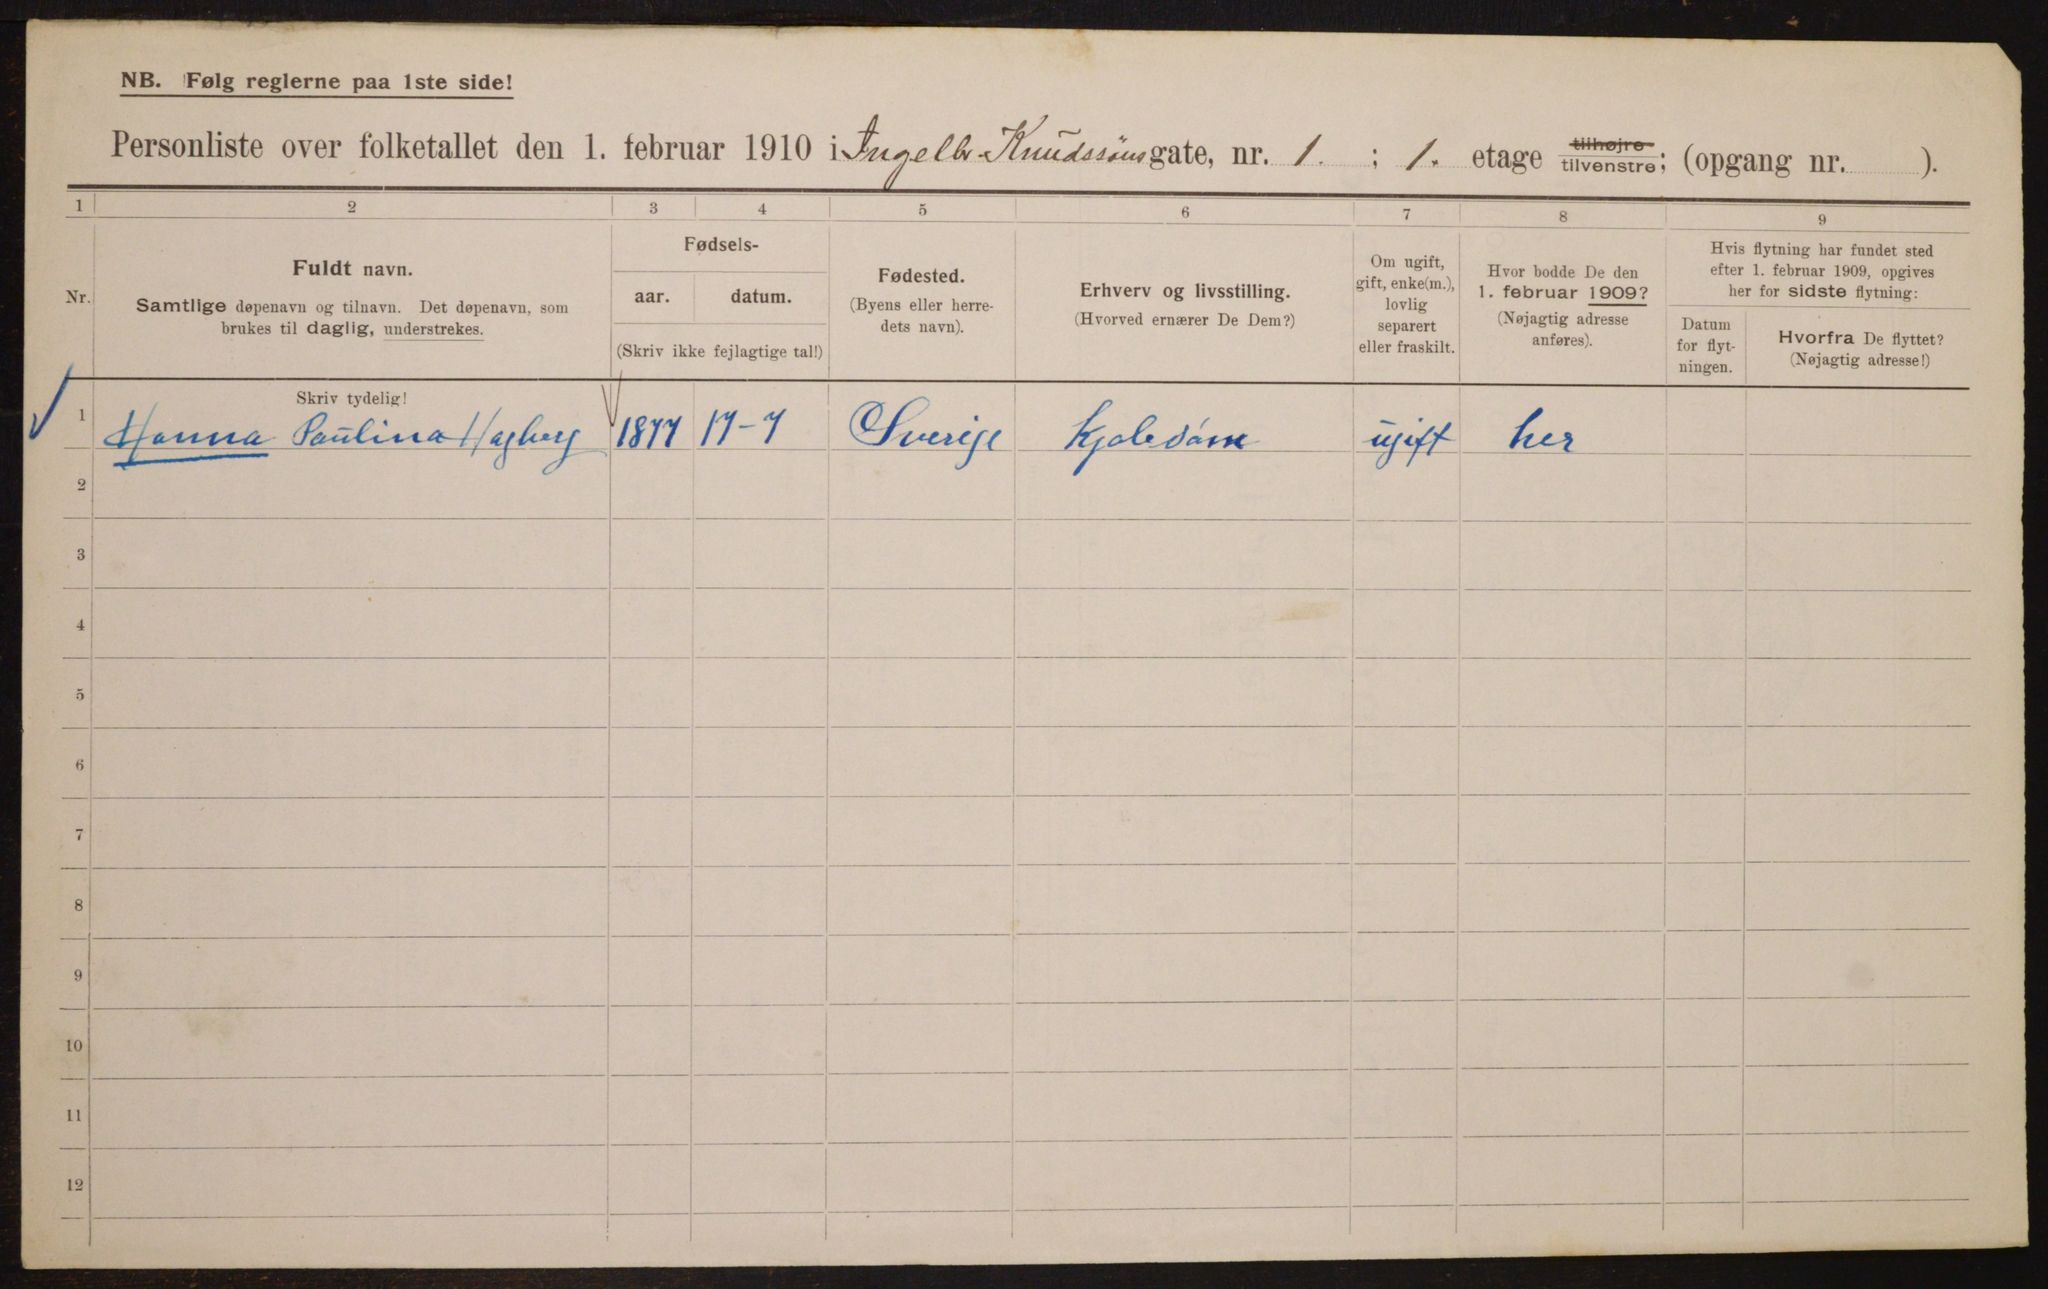 NB. Følg reglerne paa 1ste side!
Personliste over folketallet den 1. februar 1910 i Ingelbr. Knudssöns gate, nr. 1. ; 1. etage tilhøjre tilvenstre; (opgang nr. ).
1 2 3 4 5 6 7 8 9
Nr.
Fuldt navn.
Samtlige døpenavn og tilnavn. Det døpenavn, som
brukes til daglig, understrekes.
Fødsels-
aar. datum.
(Skriv ikke fejlagtige tal!)
Fødested.
(Byens eller herre-
dets navn).
Erhverv og livsstilling.
(Hvorved ernærer De Dem?)
Om ugift,
gift, enke(m.),
lovlig
separert
eller fraskilt.
Hvor bodde De den
1. februar 1909?
(Nøjagtig adresse
anføres).
Hvis flytning har fundet sted
efter 1. februar 1909, opgives
her for sidste flytning:
Datum
for flyt-
ningen.
Hvorfra De flyttet?
(Nøjagtig adresse!)
Skriv tydelig!
1 Hanna Paulina Hagberg 1877 17-7 Sverige ugift her
2
3
4
5
6
7
8
9
10
11
12